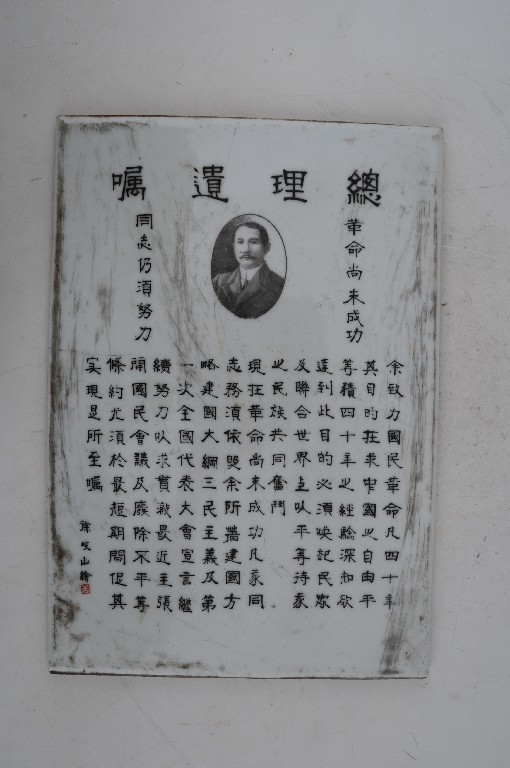 總理遺囑
革命尚未成功
同志仍須努力
余致力國民革命凡四十年
其目的在求中國之自由平
等積四十年之經驗深知欲
達到此目的必須喚起民眾
及聯合世界上以平等待我
之民族共同奮鬥
現在革命尚未成功凡我同
志務須依照余所著建國方
略建國大綱三民主義及第
一次全國代表大會宣言繼
續努力以求貫徹最近主張
開國民會議及廢除不平等
條約尤須於最短期間促其
實現是所至囑